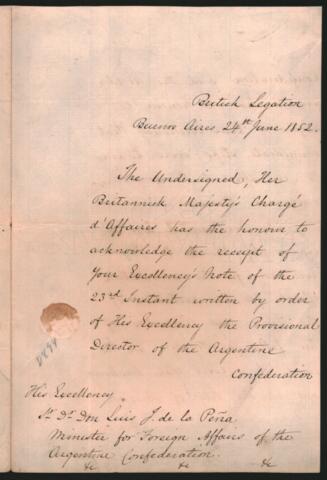 British Legation
Buenos Aires, 24th June 1852.
The Undersigned, Her
Britannick Majesty's Chargé
d'Affaires has the honour to
acknowledge the receipt of
Your Excellency's Note of the
23rd Instant written by order
of His Excellency the Provisional
Director of the Argentine
Confederation
His Excellency
Sr. Dr. Don Luis J. de la Peña
Minister for Foreign Affairs of the
Argentine Confederation.
&c &c &c